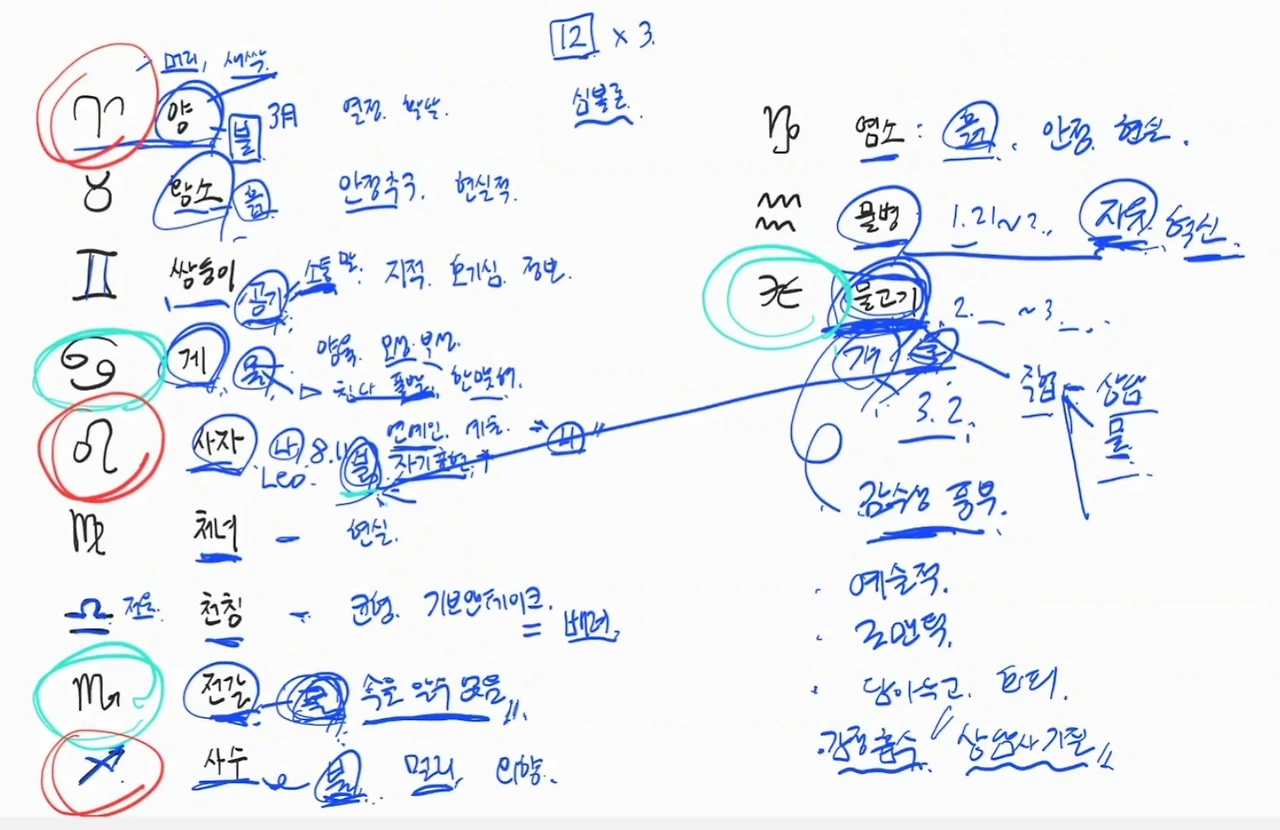 12 × 3.
심볼론
머리, 새싹
♈ 양 불 3月 열정
♉ 황소 흙 안정추구. 현실적.
♊ 쌍둥이 공기 소통 말. 지적. 호기심. 정보.
♋ 게 물 모성. 부성.
♌ 사자 나 8. 불 연예인. 예술. → 나"
Leo. 자기표현
♍ 처녀 - 현실.
♎ 저울. 천칭 - 균형. 기브앤테이크. = 배려.
♏ 전갈 물 속을 알수 없음"
♐ 사수 불 멀리
♑ 염소 : 흙. 안정. 현실.
♒ 물병 1.21~2. 자유. 혁신.
♓ 물고기 2. ~3
물
3.2. 직업 - 상담
물
감수성 풍부.
· 예술적.
· 로맨틱.
·
· 감정흡수 " 상담사기질"